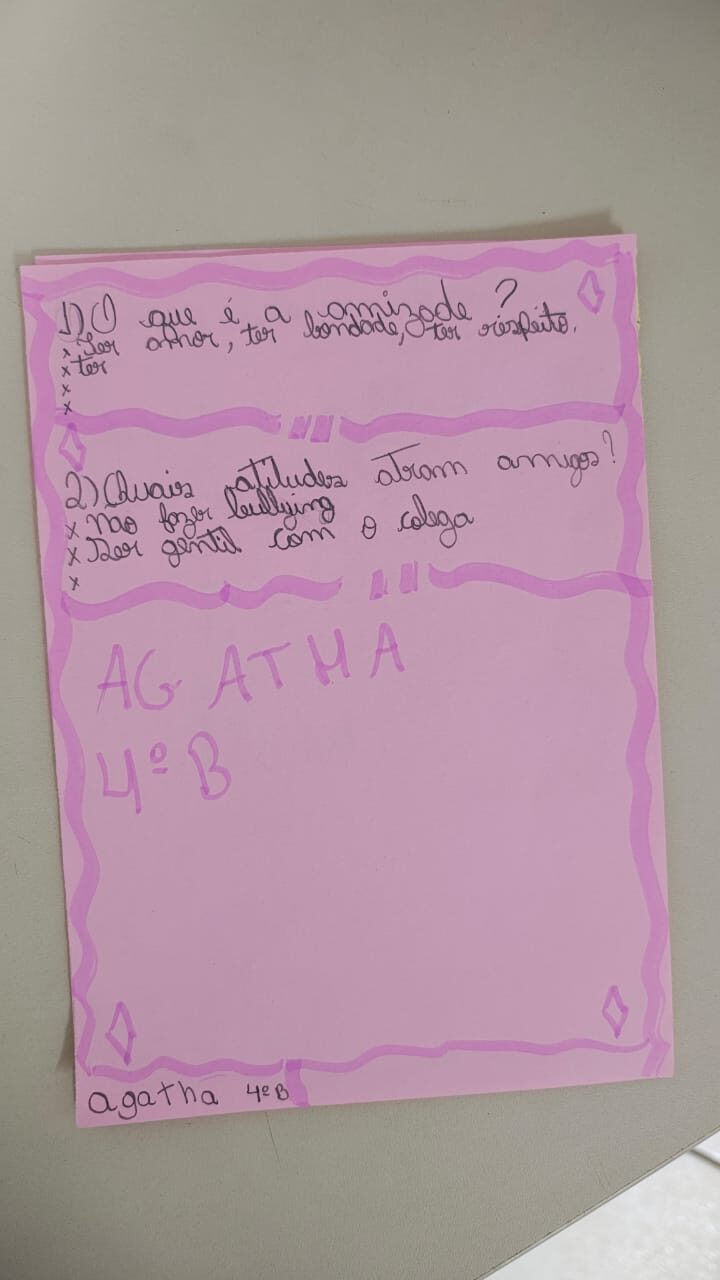 1) O que é a amizade?
x Ser amor, ter bondade, ter respeito.
x ter
x
x
2) Quais atitudes atram amigos?
x Não fazer bullying
x Ser gentil com o colega
x
AGATHA
4º B
agatha 4º B